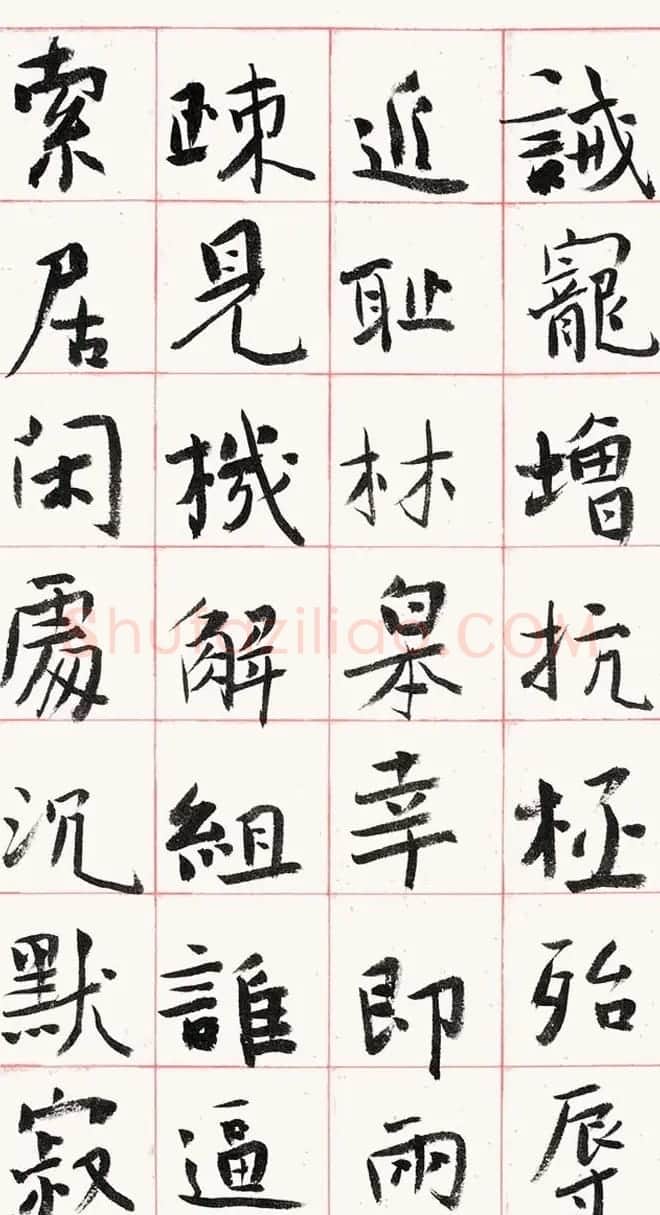 誡寵增抗極殆辱
近耻林皋幸即兩
疎見機解組誰逼
索居閑處沉默寂
Shufaziliao.COM